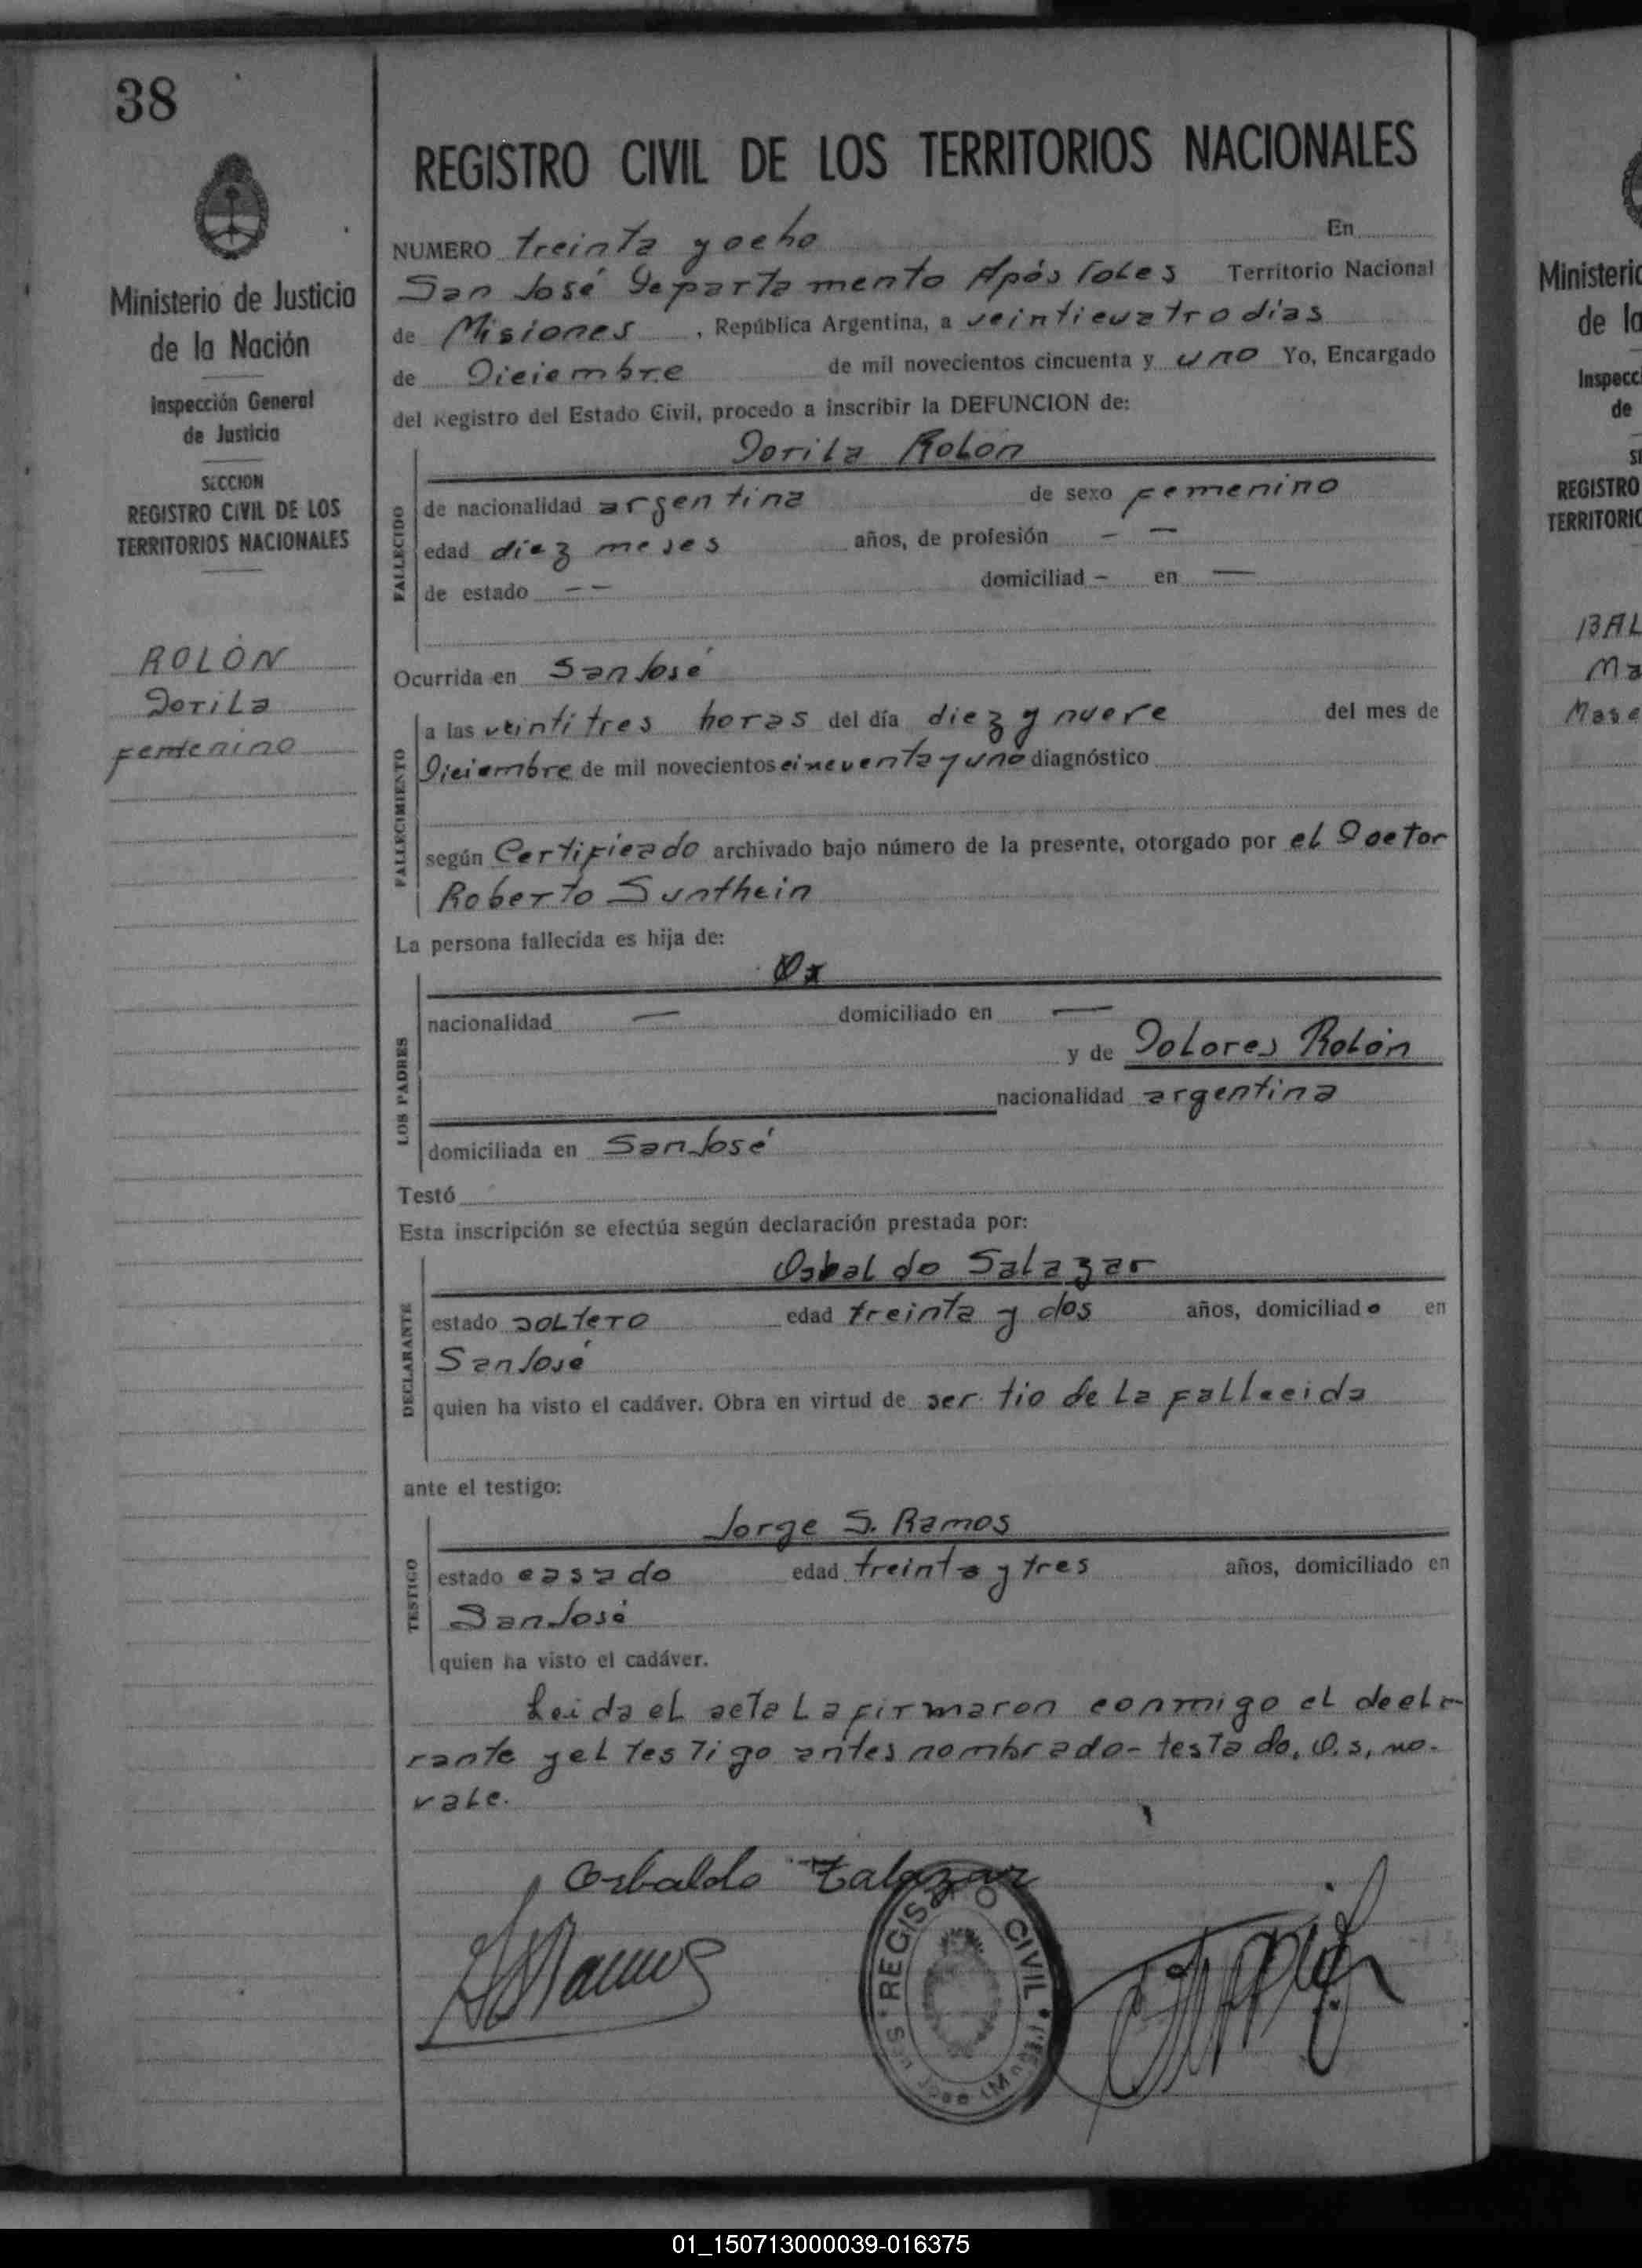 38
Ministerio de Justicia
de la Nación
Inspección General
de Justicia
SECCION
REGISTRO CIVIL DE LOS
TERRITORIOS NACIONALES
ROLÓN
Dorila
femenino
REGISTRO CIVIL DE LOS TERRITORIOS NACIONALES
NUMERO treinta y ocho En
San José Departamento Apóstoles Territorio Nacional
de Misiones, República Argentina, a veinticuatro dias
de Diciembre de mil novecientos cincuenta y uno Yo, Encargado
del Registro del Estado Civil, procedo a inscribir la DEFUNCION de:
Dorila Rolon
FALLECIDO
de nacionalidad argentina de sexo femenino
edad diez meses años, de profesión — —
de estado — — domiciliad — en —
Ocurrida en San José
FALLECIMIENTO
a las veintitres horas del día diez y nueve del mes de
Diciembre de mil novecientos cincuenta y uno diagnóstico
según Certificado archivado bajo número de la presente, otorgado por el Doctor
Roberto Sunthein
La persona fallecida es hija de:
LOS PADRES
nacionalidad — domiciliado en —
y de Dolores Rolón
nacionalidad argentina
domiciliada en San José
Testó
Esta inscripción se efectúa según declaración prestada por:
Osbaldo Salazar
DECLARANTE
estado soltero edad treinta y dos años, domiciliado en
San José
quien ha visto el cadáver. Obra en virtud de ser tio de la fallecida
ante el testigo:
Jorge S. Ramos
TESTIGO
estado casado edad treinta y tres años, domiciliado en
San José
quien ha visto el cadáver.
Leida el acta la firmaron conmigo el decla-
rante y el testigo antes nombrado- testado, O.s, no-
vale.
Osbaldo Zalazar
REGISTRO CIVIL
Ministerio
de la
Inspecci
de
REGISTRO
TERRITORIO
BAL
Ma
Mase
01_150713000039-016375